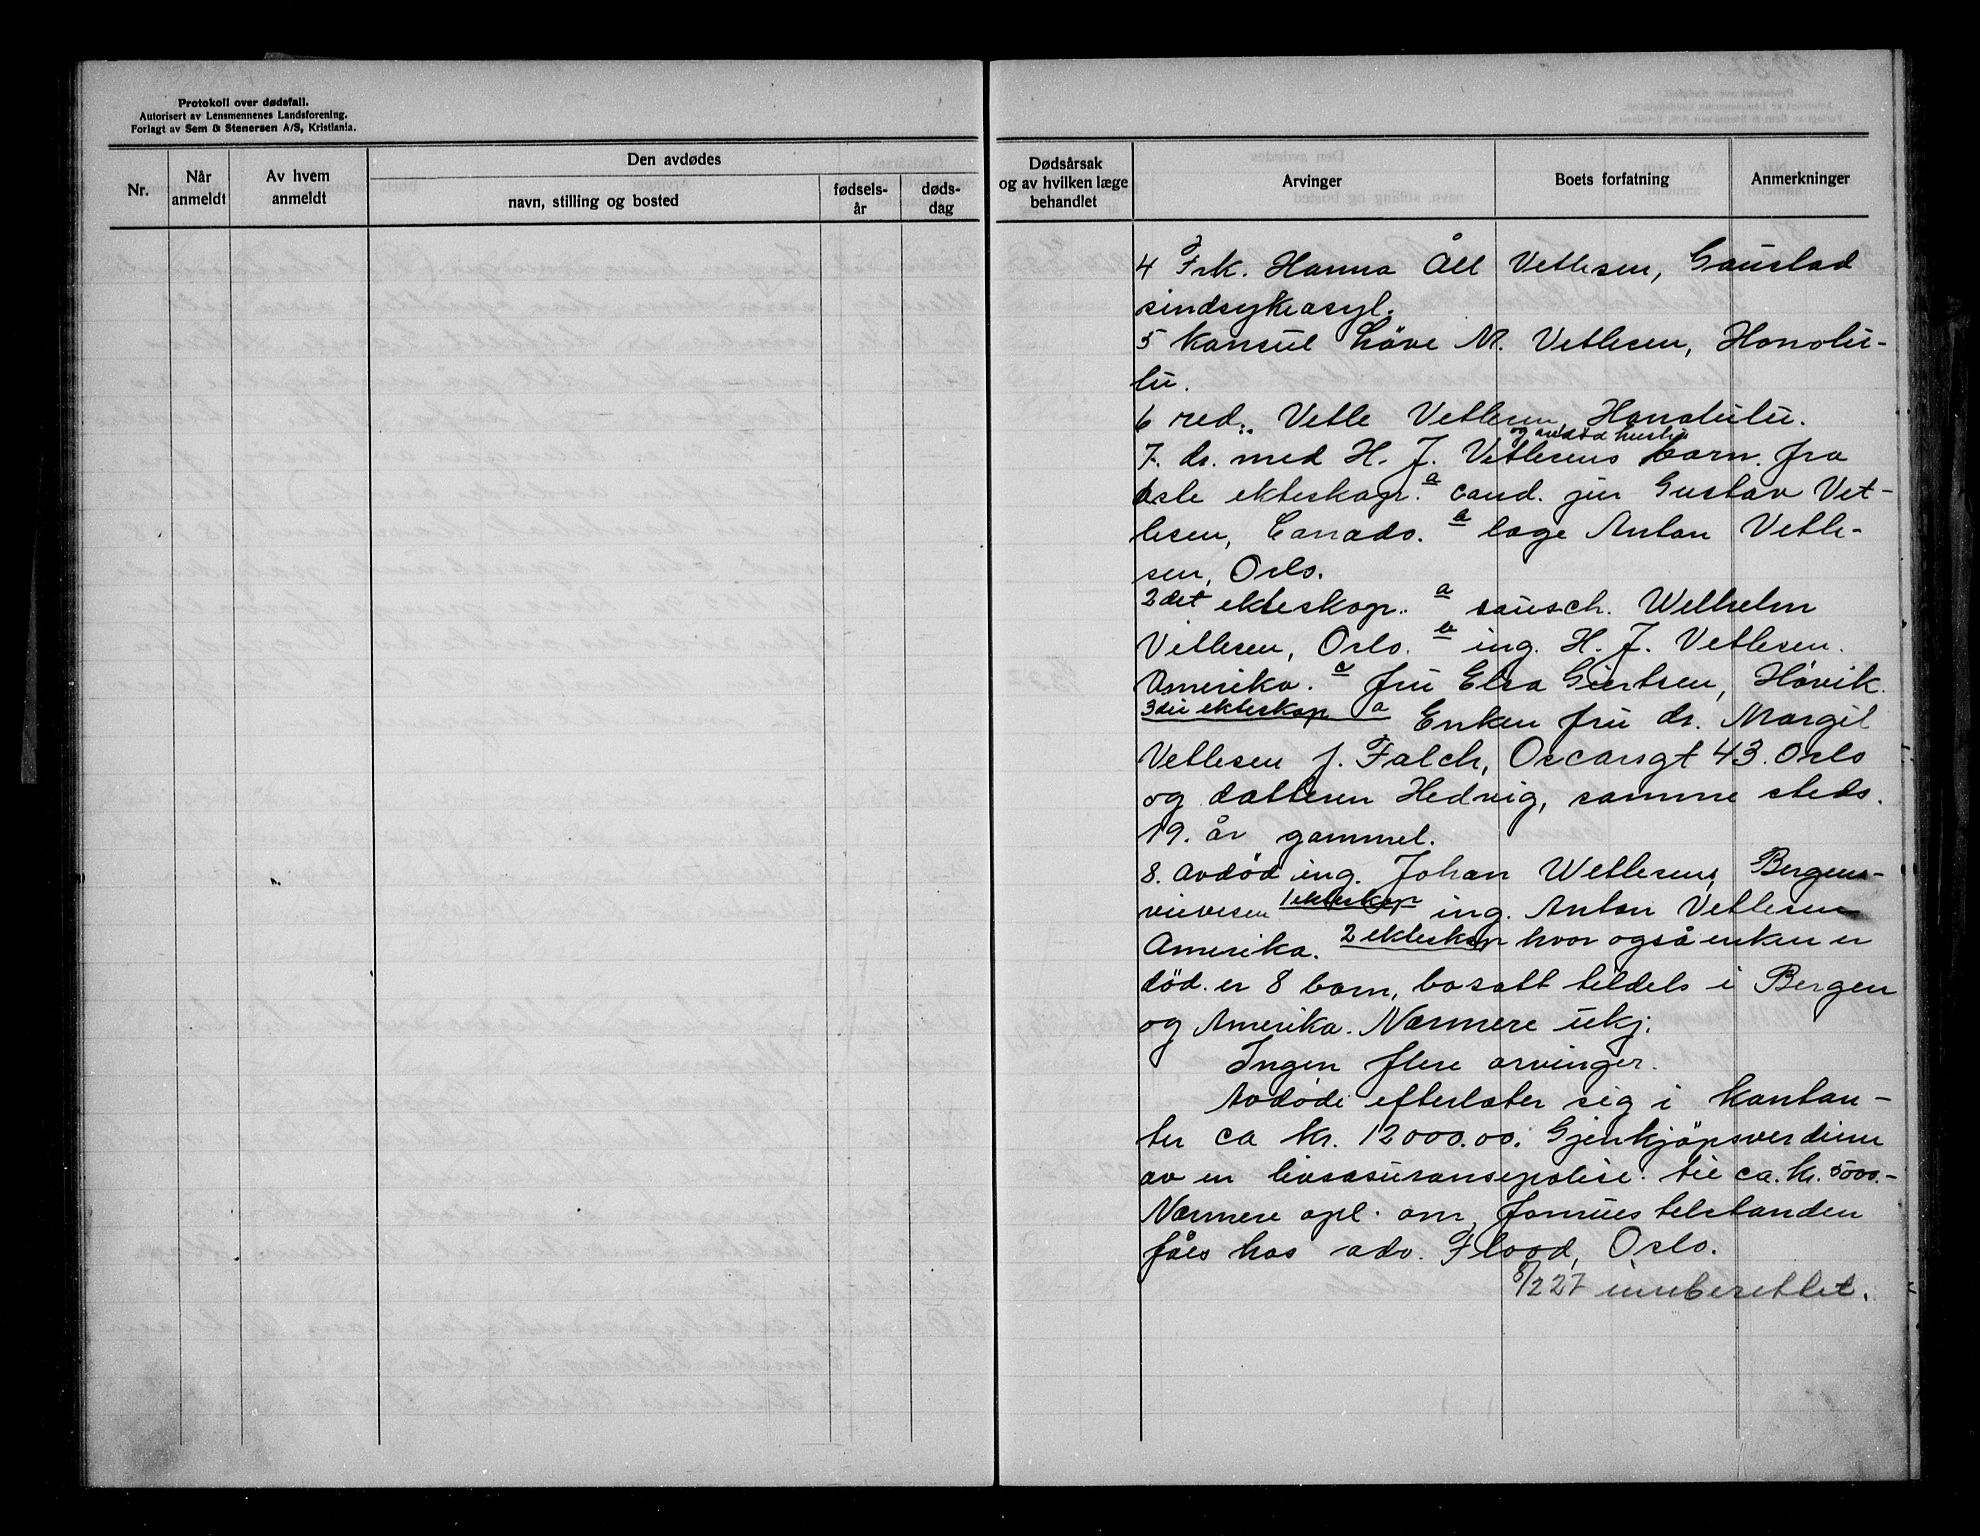 Protokoll over dødsfall.
Autorisert av Lensmennenes Landsforening.
Forlagt av Sem & Stenersen A/S, Kristiania.
Nr.
Når anmeldt
Av hvem anmeldt
Den avdødes
navn, stilling og bosted
fødsels-år
døds-dag
Dødsårsak og av hvilken læge behandlet
Arvinger
Boets forfatning
Anmerkninger
4 Frk. Hanna Åll Vetlesen, Gaustad
sindsykeasyl.
5 Konsul Løve M. Vetlesen, Honolu-
lu.
6 red. Vetle Vetlesen, Honolulu.
og avdød hustru
7. dr. med H. J. Vetlesens barn fra
1ste ekteskap. a cand. jur Gustav Vet-
lesen, Canada. b læge Anton Vetle-
sen, Oslo.
2det ekteskap. a Wilhelm
Vetlesen, Oslo. b ing. H. J. Vetlesen.
Amerika. c fru Elsa Giertsen, Høvik.
3die ekteskap a Enken fru dr. Margit
Vetlesen f. Falch, Oscarsgt 43. Oslo
og datteren Hedvig, samme steds.
19. år gammel.
8. Avdød ing. Johan Wetlesens, Bergens-
veivesen 1 ekteskap ing. Anton Vetlesen
Amerika. 2 ekteskap hvor også enken er
død. er 8 barn, bosatt tildels i Bergen
og Amerika. Nærmere ukj.
Ingen flere arvinger.
Avdøde efterlater sig i kontan-
ter ca kr. 12000.00. Gjenkjøpsverdien
av en livsasuransepolise til ca. kr. 5000.-
Nærmere opl. om formuestilstanden
fåes hos adv. Flood, Oslo.
8/2 27 innberettet.